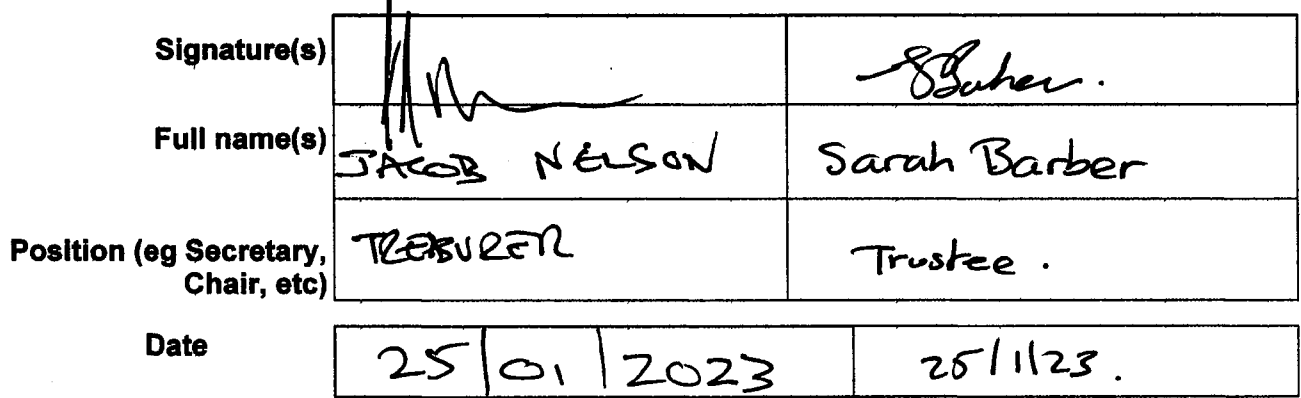 Signature(s) SBarber.
Full name(s) JACOB NELSON Sarah Barber
Position (eg Secretary, TREASURER Trustee.
Chair, etc)
Date 25/01/2023 25/1/23.